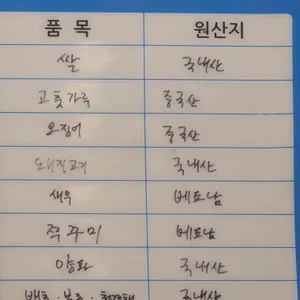 품 목 원산지
쌀 국내산
고춧가루 중국산
오징어 중국산
도니진고기 국내산
새우 베트남
쭈꾸미 베트남
양파 국내산
배추·부추 국내산